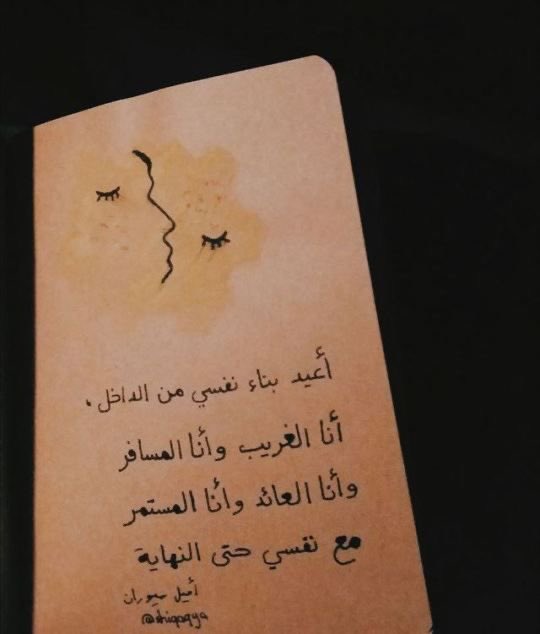 أعيد بناء نفسي من الداخل.
أنا الغريب وأنا المسافر
وأنا العائد وأنا المستمر
مع نفسي حتى النهاية
أميل سيوران